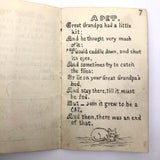 7
A PET.
Great Grandpa had a little
kit;
And he thought very much
of it;
'Twould cuddle down, and shut
its eyes,
And sometimes try to catch
the flies;
Or lie on your Great Grandpa's
bed,
And stay there, till it must
be fed.
But soon it grew to be a
CAT,
And then, there was an end
of that.